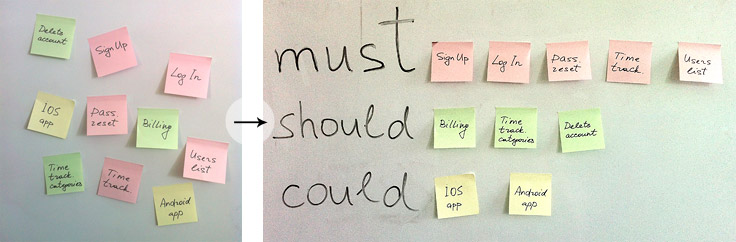 Delete
account
Sign Up
Log In
IOS
app
Pass.
reset
Billing
Users
list
Time
track.
categories
Time
track.
Android
app
must
Sign Up
Log In
Pass.
reset
Time
track.
Users
list
should
Billing
Time
track.
categories
Delete
account
could
IOS
app
Android
app